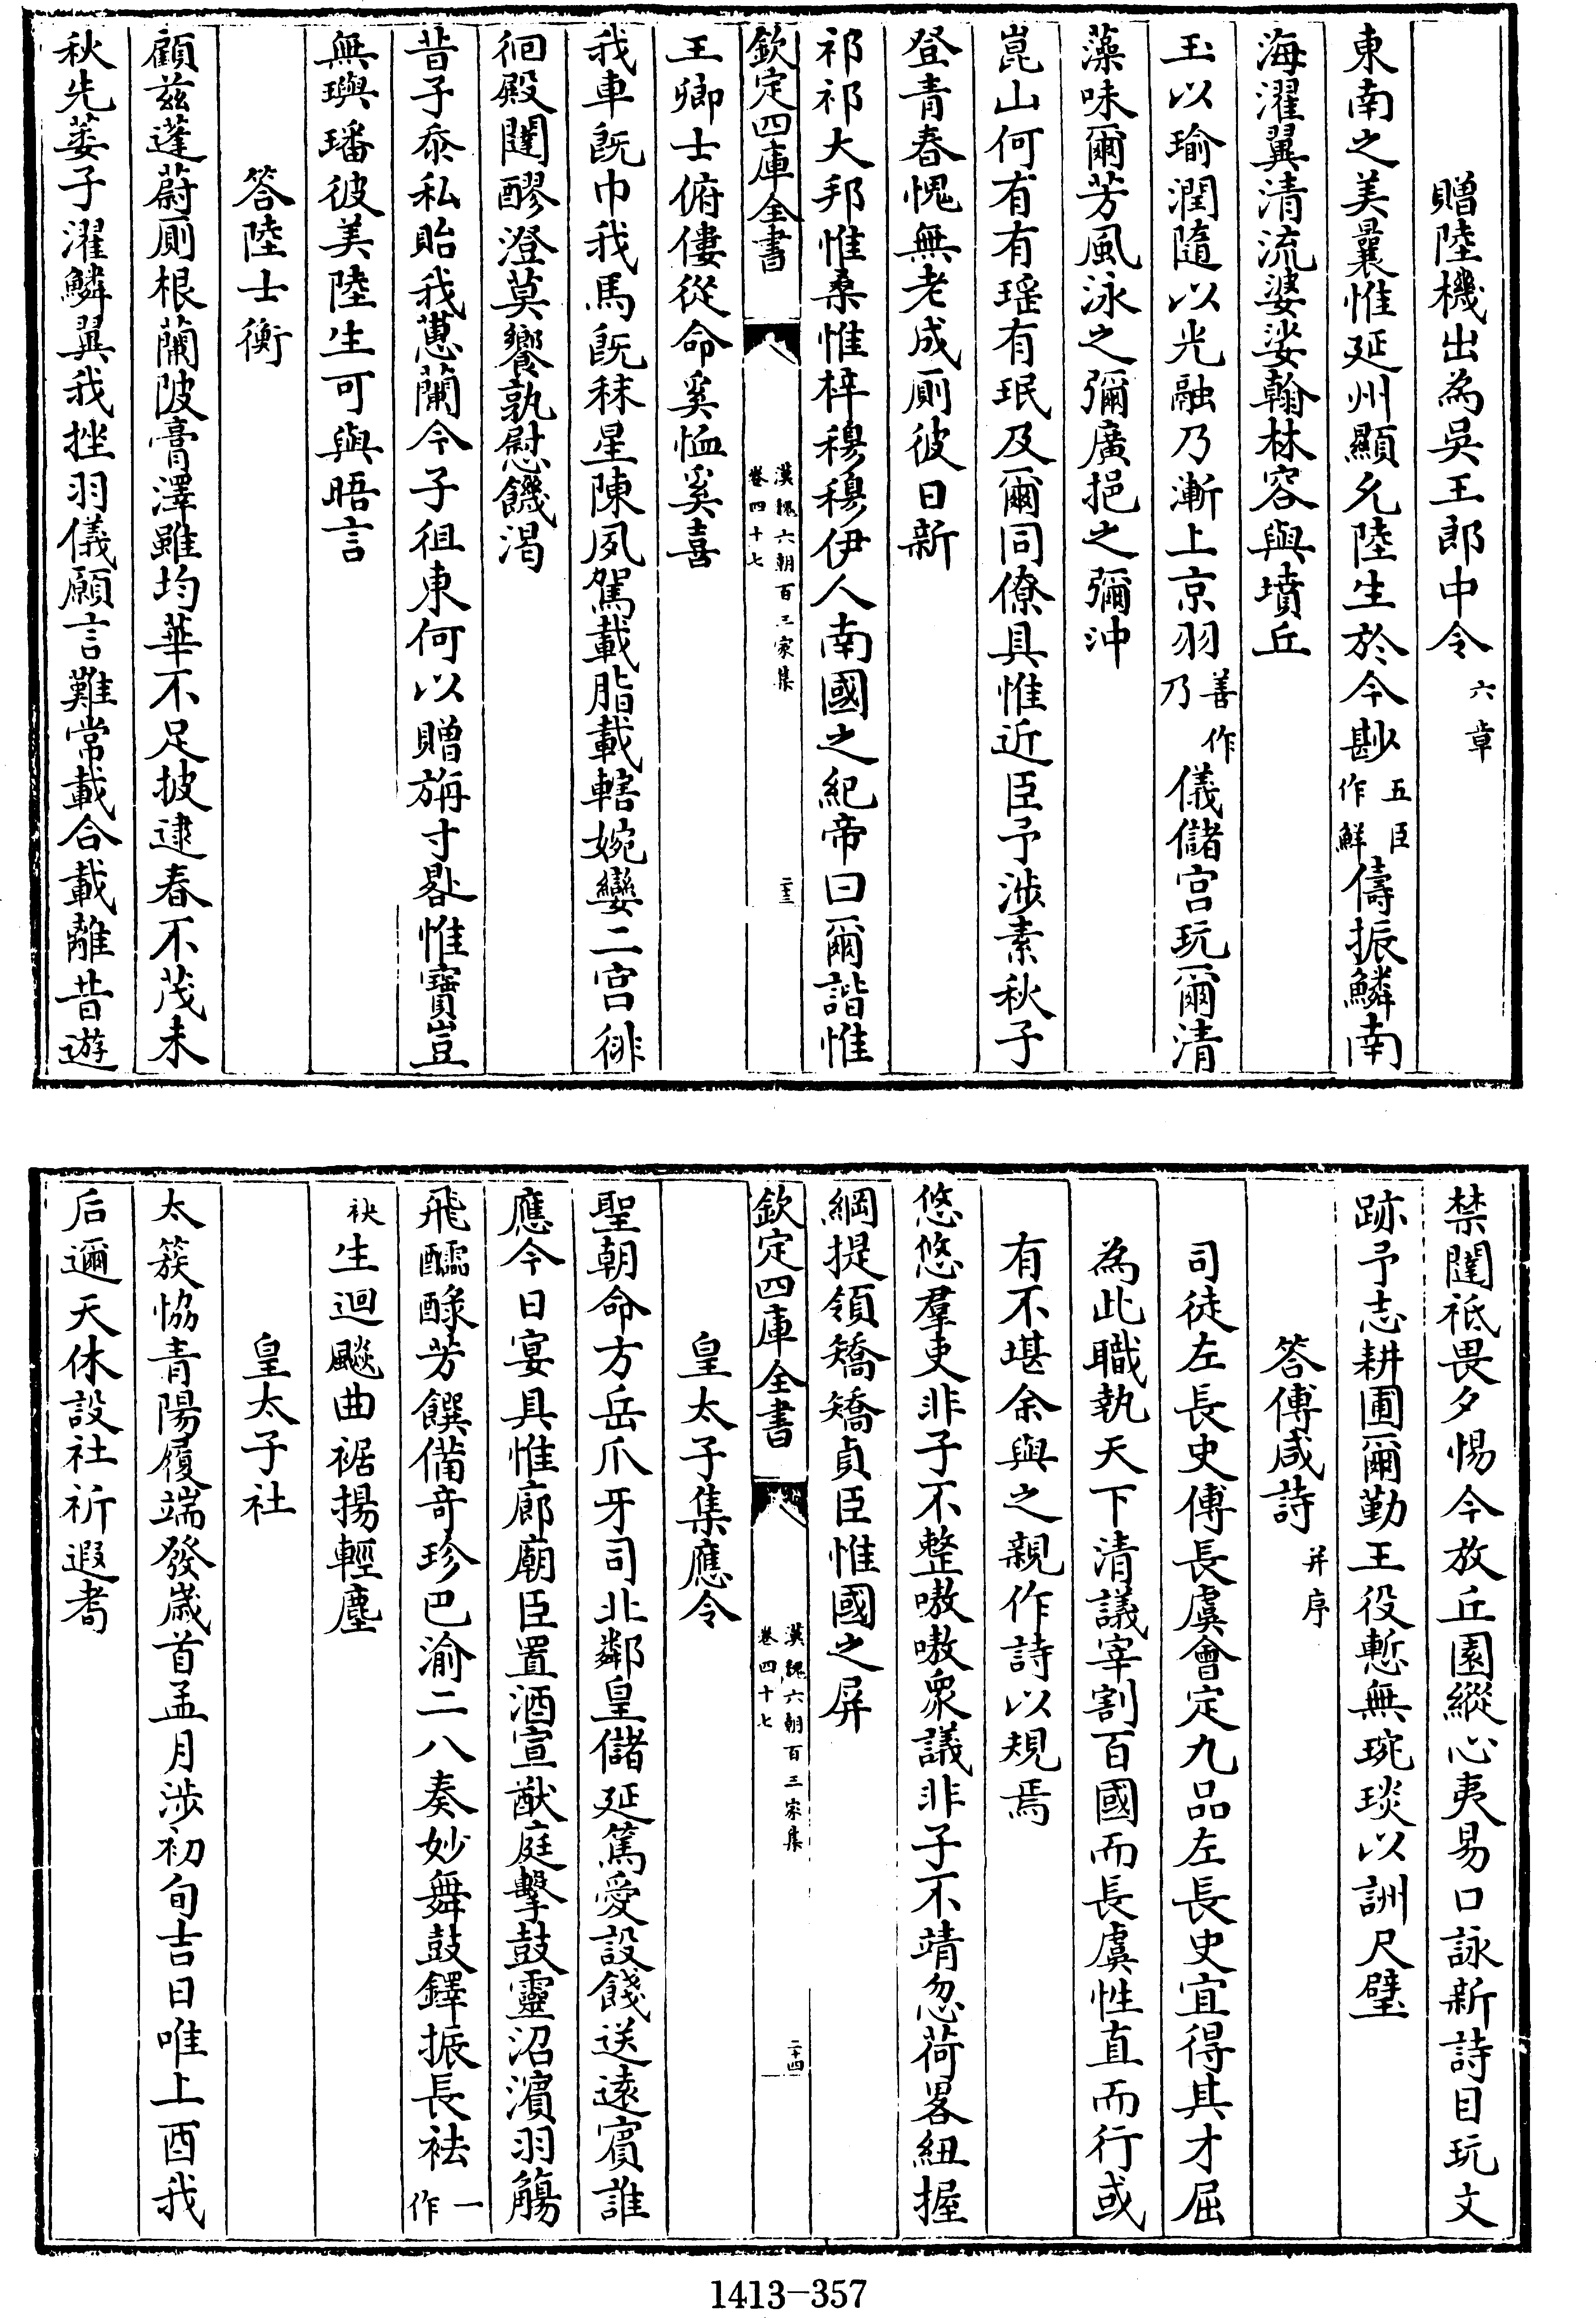 贈陸機出為吳王郎中令六章
東南之美曩惟延州顯允陸生於今尠五臣作鮮儔振鱗南
海濯翼清流婆娑翰林容與墳丘
玉以瑜潤隨以光融乃漸上京羽善作乃儀儲宫玩爾清
藻味爾芳風泳之彌廣挹之彌沖
崑山何有有瑤有珉及爾同僚具惟近臣予涉素秋子
登青春愧無老成厠彼日新
祁祁大邦惟桑惟梓穆穆伊人南國之紀帝曰爾諧惟
欽定四庫全書 漢魏六朝百三家集 卷四十七 二十三
王卿士俯僂從命奚恤奚喜
我車既巾我馬既秣星陳夙駕載脂載轄婉孌二宫徘
徊殿闥醪澄莫饗孰慰饑渴
昔子忝私貽我蕙蘭今子徂東何以贈旃寸晷惟寶豈
無璵璠彼美陸生可與晤言
答陸士衡
顧兹蓬蔚厠根蘭陂膏澤雖均華不足披逮春不茂未
秋先萎子濯鱗翼我挫羽儀願言難常載合載離昔遊
禁闥祗畏夕惕今放丘園縱心夷易口詠新詩目玩文
跡予志耕圃爾勤王役慙無琬琰以詶尺璧
答傅咸詩并序
司徒左長史傅長虞會定九品左長史宜得其才屈
為此職執天下清議宰割百國而長虞性直而行或
有不堪余與之親作詩以規焉
悠悠羣吏非子不整嗷嗷衆議非子不靖忽荷畧紐握
綱提領矯矯貞臣惟國之屏
欽定四庫全書 漢魏六朝百三家集 卷四十七 二十四
皇太子集應令
聖朝命方岳爪牙司北鄰皇儲延篤愛設餞送遠賓誰
應今日宴具惟廊廟臣置酒宣猷庭擊鼓靈沼濵羽觴
飛醽醁芳饌備竒珍巴渝二八奏妙舞鼓鐸振長袪一作
袂生迴飈曲裾揚輕塵
皇太子社
太簇恊青陽履端發歲首孟月涉初旬吉日唯上酉我
后邇天休設社祈遐耇
1413-357